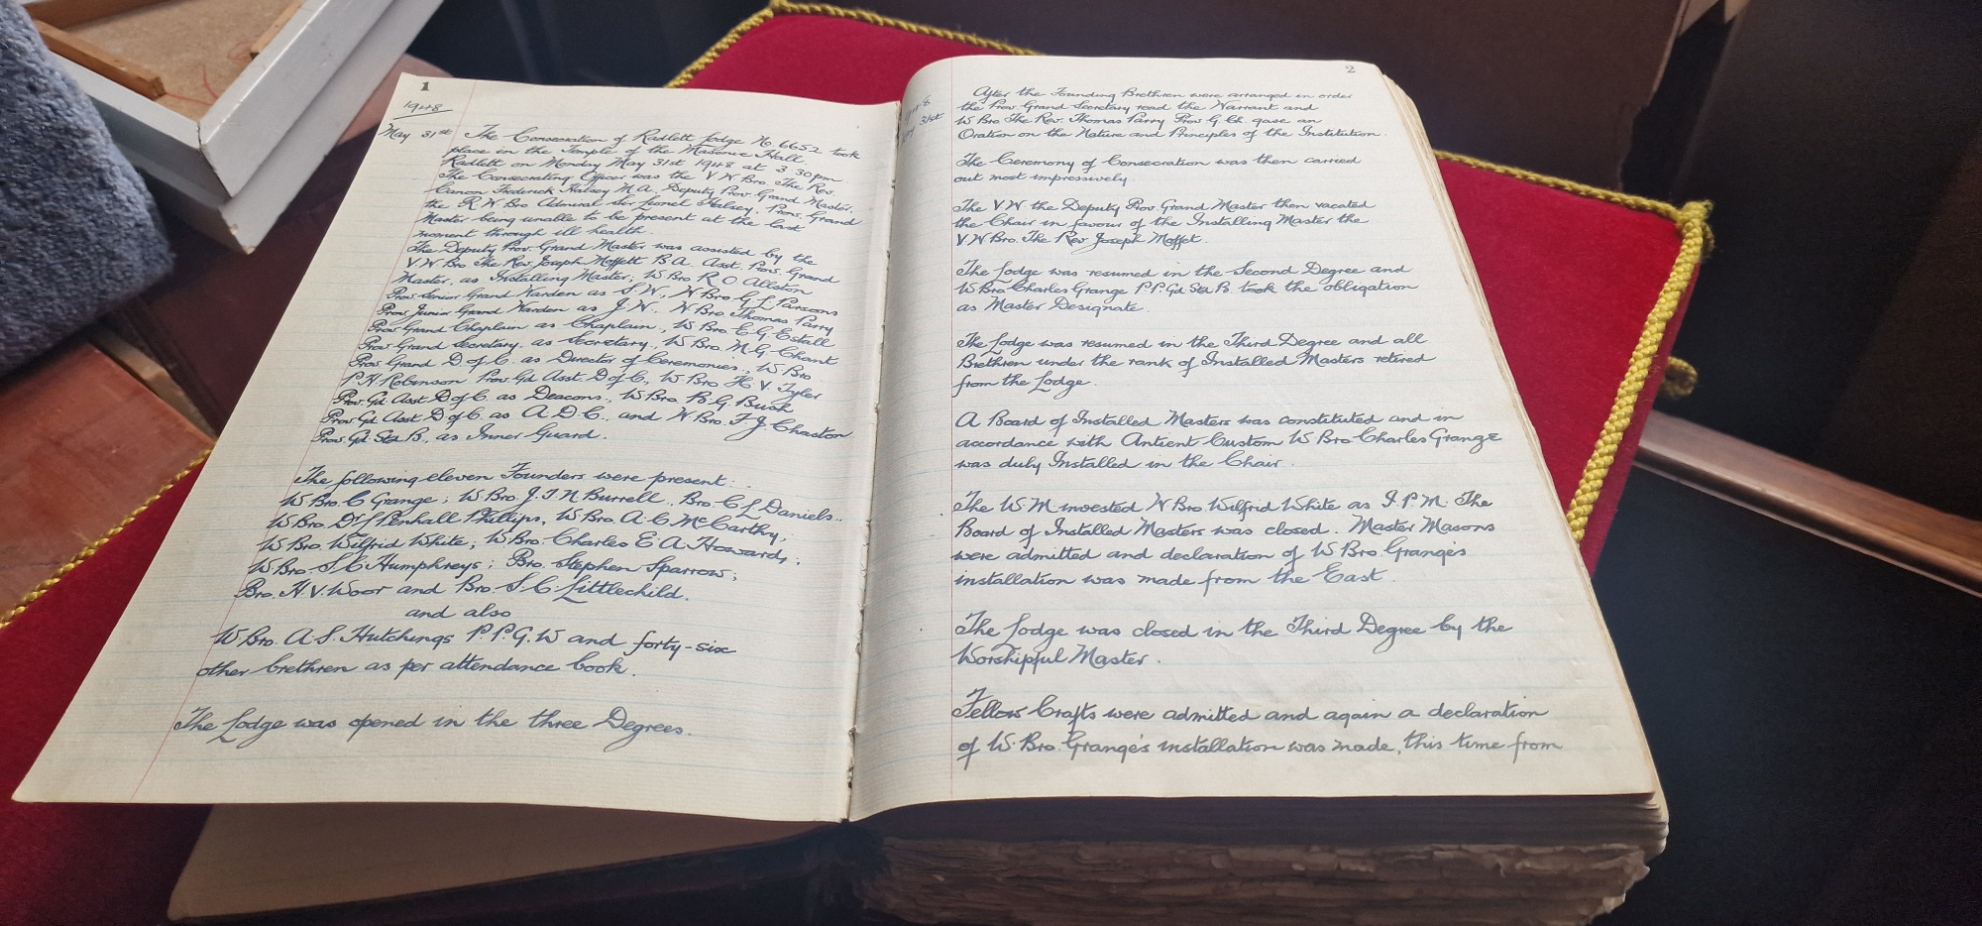 1
1948
May 31st The Consecration of Radlett Lodge No. 6652 took
place in the Temple of the Masonic Hall.
Radlett on Monday May 31st 1948 at 3.30pm
The Consecrating Officer was the V W Bro. The Rev.
Canon Frederick Halsey M.A. Deputy Prov. Grand Master,
the R.W. Bro Admiral Sir Lionel Halsey, Prov. Grand
Master being unable to be present at the last
moment through ill health.
The Deputy Prov. Grand Master was assisted by the
V.W Bro The Rev Joseph Moffett B.A. Asst. Prov. Grand
Master, as Installing Master; W Bro R O Allston
Prov. Senior Grand Warden as S.W., W Bro G L Parsons
Prov. Junior Grand Warden as J.W., W Bro Thomas Parry
Prov Grand Chaplain as Chaplain, W Bro C G Estall
Prov Grand Secretary. as Secretary, W Bro N.G. Chant
Prov. Grand D. of C. as Director of Ceremonies, W. Bro
P.H. Robinson Prov. Gd Asst. D of C, W Bro H V Tyler
Prov. Gd. Asst D of C. as Deacons, W. Bro R G Busk
Prov. Gd Asst D of C as A.D.C., and W Bro. F. J. Chaston
Prov. Gd. Std B, as Inner Guard.
The following eleven Founders were present:
W Bro. C Grange; W Bro. J. I. N. Burrell. Bro. C L Daniels
W. Bro. Dr L Penhall Phillips, W Bro. A. C. McCarthy,
W Bro. Wilfrid White; W Bro. Charles E A Howard;
W Bro. S C Humphreys; Bro. Stephen Sparrow;
Bro. H. V. Woor and Bro. S. C. Littlechild.
and also
W Bro. A. S. Hutchings P.P.G.W and forty-six
other brethren as per attendance book.
The Lodge was opened in the three Degrees.
2
31st
After the Founding Brethren were arranged in order
the Prov. Grand Secretary read the Warrant and
W Bro The Rev. Thomas Parry Prov G. Ch. gave an
Oration on the Nature and Principles of the Institution.
The Ceremony of Consecration was then carried
out most impressively.
The V W the Deputy Prov Grand Master then vacated
the Chair in favour of the Installing Master the
V W Bro. The Rev Joseph Moffet.
The Lodge was resumed in the Second Degree and
W Bro Charles Grange P.P. Gd Std B. took the obligation
as Master Designate.
The Lodge was resumed in the Third Degree and all
Brethren under the rank of Installed Masters retired
from the Lodge.
A Board of Installed Masters was constituted and in
accordance with Antient Custom W Bro Charles Grange
was duly Installed in the Chair.
The W.M invested W Bro Wilfrid White as I.P.M. The
Board of Installed Masters was closed. Master Masons
were admitted and declaration of W Bro Grange's
installation was made from the East.
The Lodge was closed in the Third Degree by the
Worshipful Master.
Fellow Crafts were admitted and again a declaration
of W. Bro. Grange's installation was made, this time from